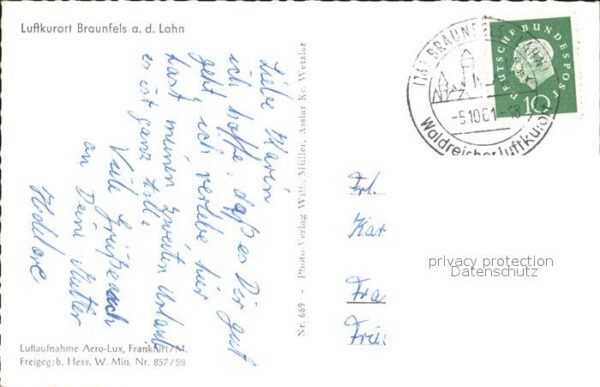 Luftkurort Braunfels a. d. Lahn
Liebe Karin
ich hoffe, daß es Dir gut
geht, ich verlebe hier
hart meinen zweiten Urlaub
es ist ganz toll.
Viele Grüße auch
an Deine Mutter
Hidelore
Luftaufnahme Aero-Lux, Frankfurt/M.
Freigegeb. Hess. W. Min. Nr. 857/58
Nr. 669 • Photo-Verlag Wilh. Müller, Asslar Kr. Wetzlar
(16) BRAUNFELS
-5.10.61-18
Waldreicher Luftkurort
DEUTSCHE BUNDESPOST
10
Frl.
Kar
Fra
Frie
privacy protection
Datenschutz